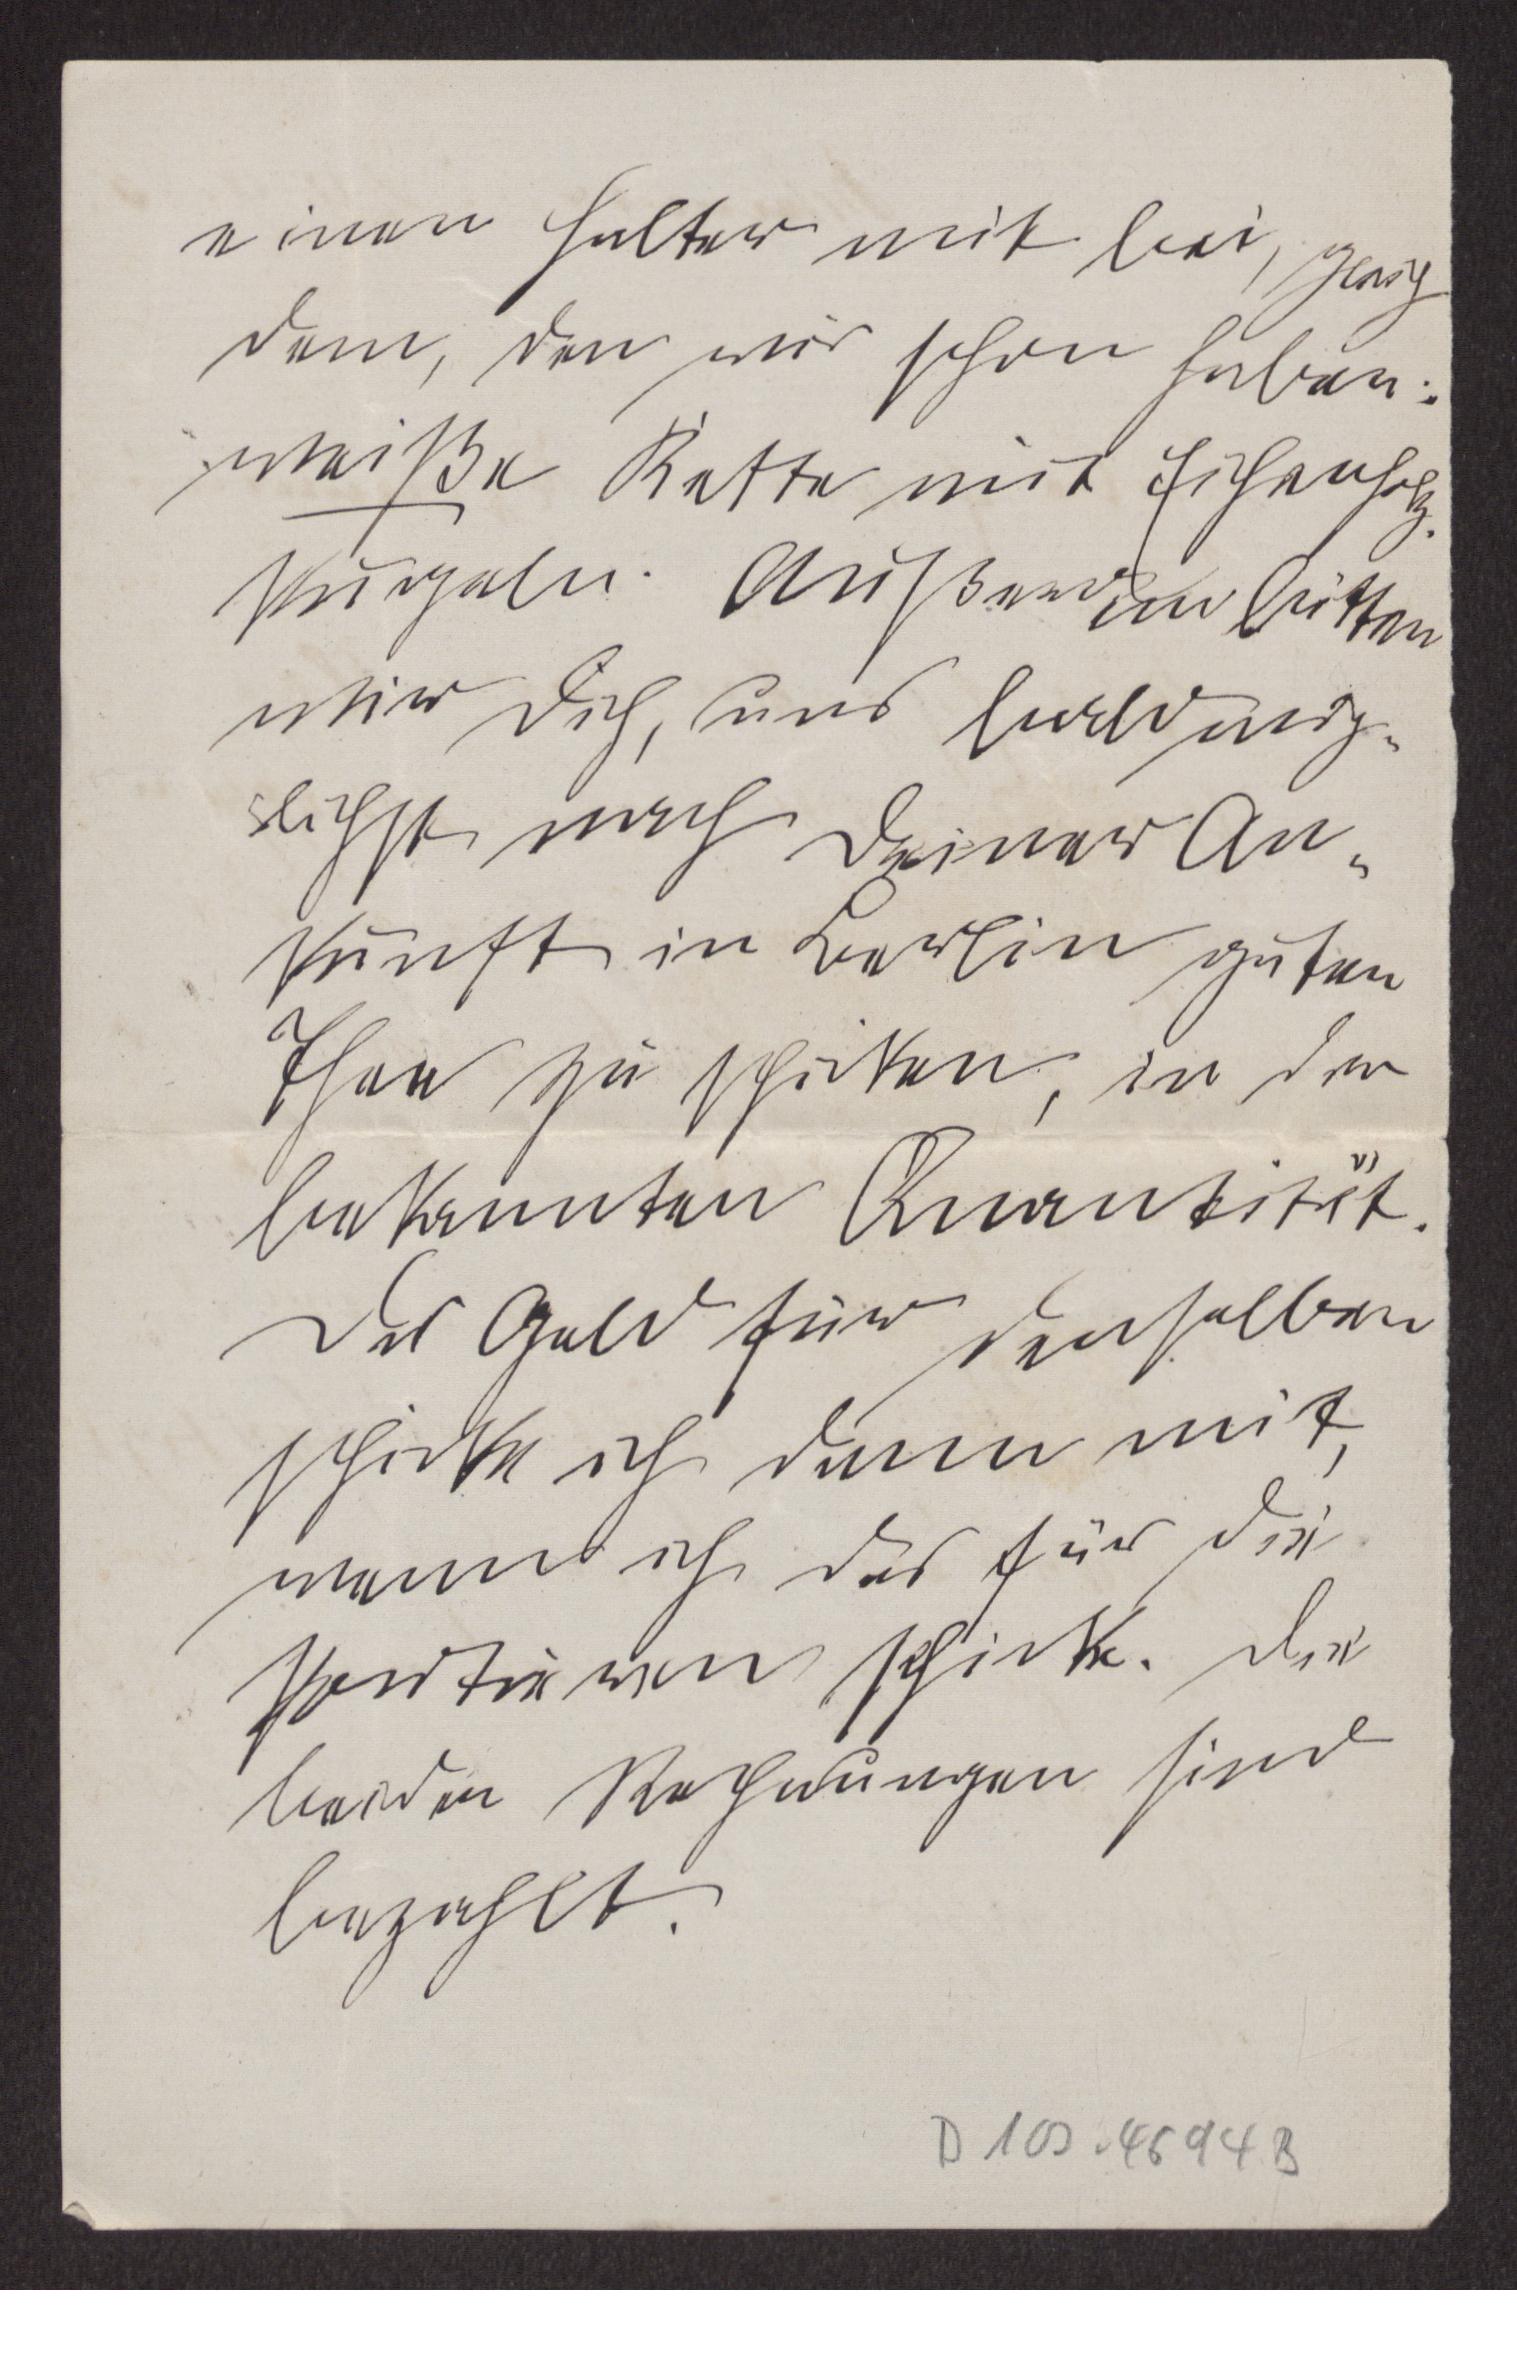 einen Halter mit bei, gleich
dem, den wir schon haben:
weiße Kette mit Eichenholz-
kugeln. Außerdem bitten
wir Dich, uns baldmög-
lichst nach Deiner An-
kunft in Berlin guten
Thee zu schicken, in der
bekannten Quantität.
Das Geld für denselben
schicke ich dann mit,
wenn ich das für die
Portièren schicke. Die
beiden Rechnungen sind
bezahlt.
D 100.4694 B